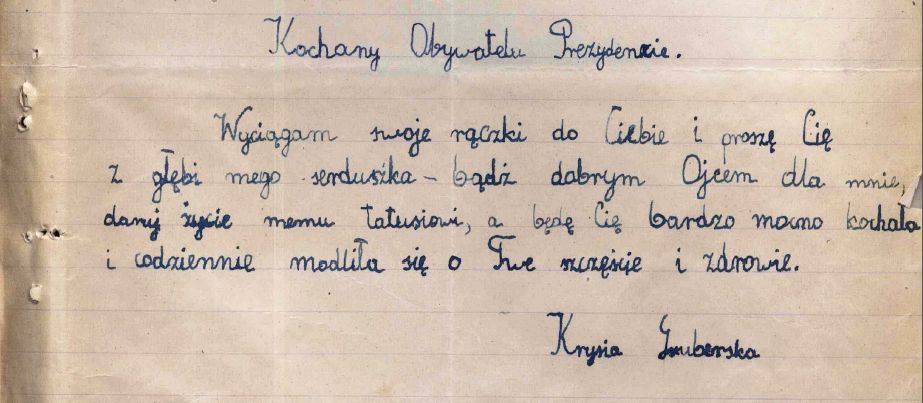 Kochany Obywatelu Prezydencie.
Wyciągam swoje rączki do Ciebie i proszę Cię
z głębi mego serduszka – bądź dobrym Ojcem dla mnie,
daruj życie memu tatusiowi, a będę Cię bardzo mocno kochała
i codziennie modliła się o Twe szczęście i zdrowie.
Krysia